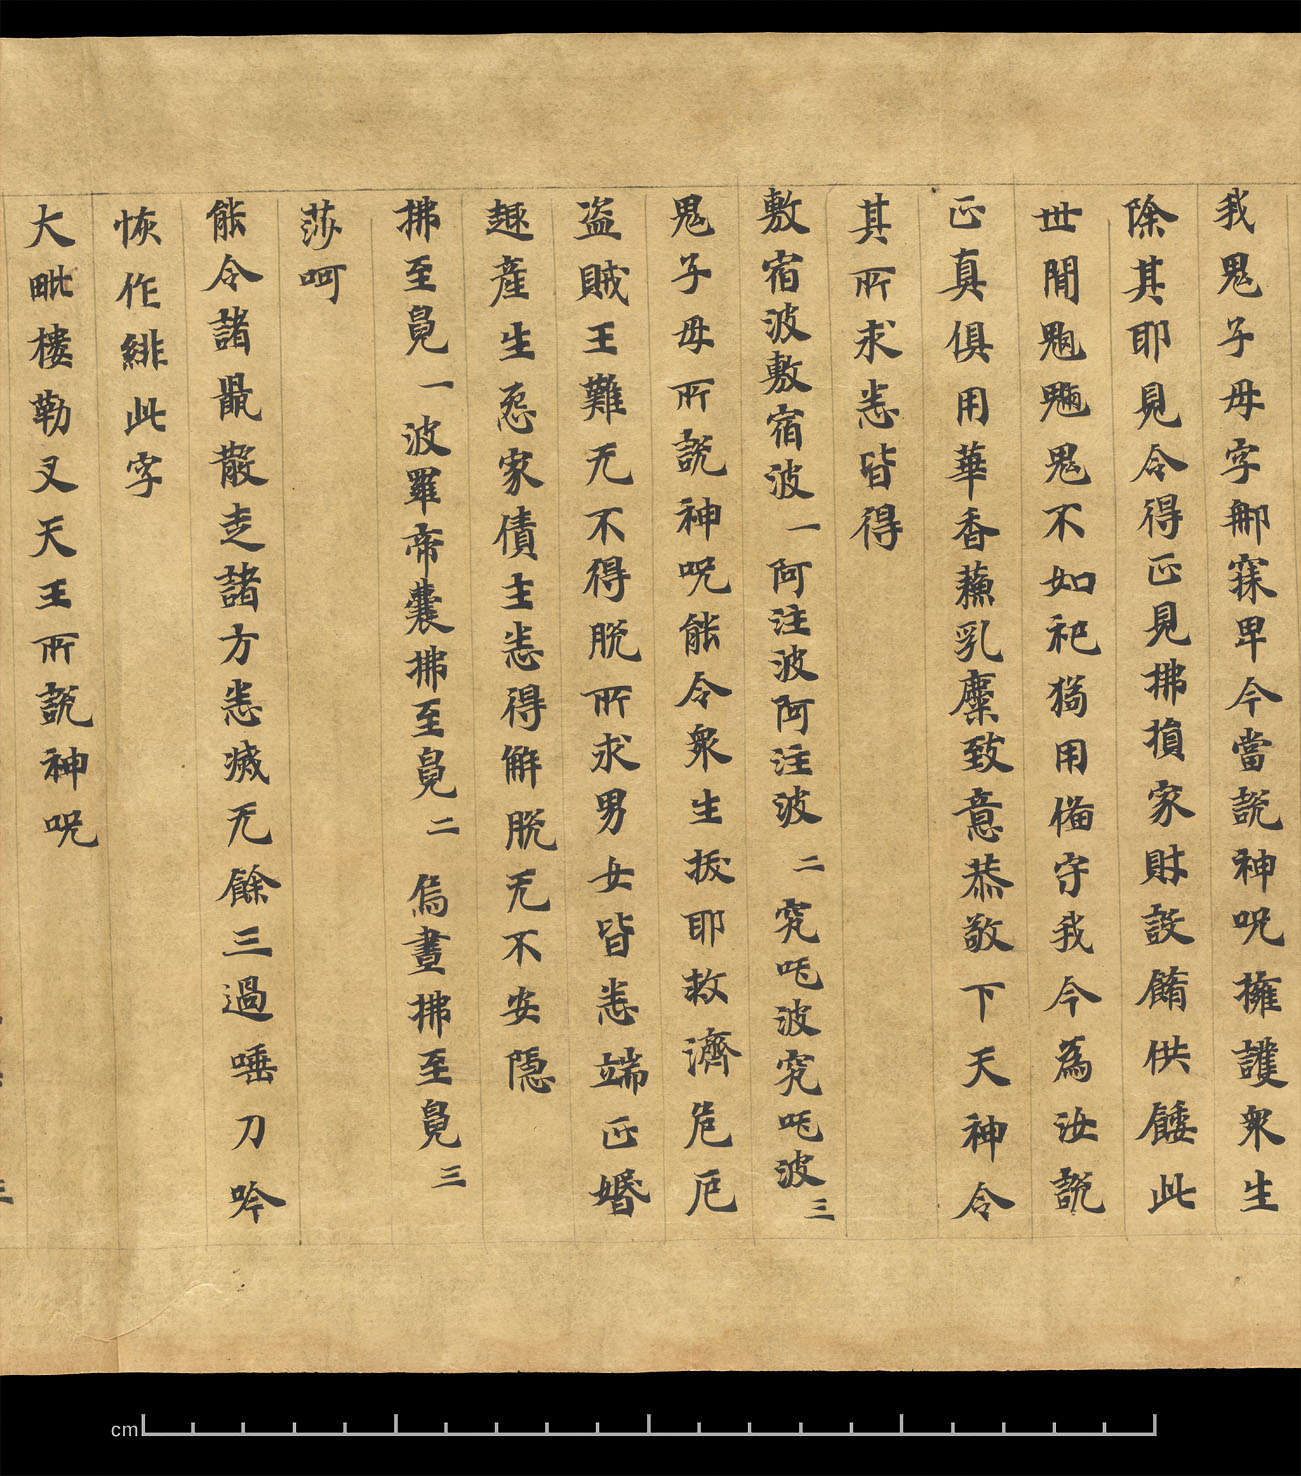 我鬼子母字郍寐卑今當説神呪擁護衆生
除其耶見令得正見拂損家財設餚供餧此
世閒魍魎鬼不如祀猫用俻守我今為汝説
正真俱用華香蘓乳糜致意恭敬下天神令
其所求悉皆得
敷宿波敷宿波一阿注波阿注波二究吒波究吒波三
鬼子母所説神呪能令衆生拔耶救濟危厄
盗賊王難无不得脱所求男女皆悉端正婚
趣産生惌家債主悉得解脱无不安隠
拂至㲋一波羅帝囊拂至㲋二烏晝拂至㲋三
莎呵
能令諸鼠散走諸方悉滅无餘三過唾刀吟
恢作緋此字
大毗樓勒叉天王所説神呪
cm